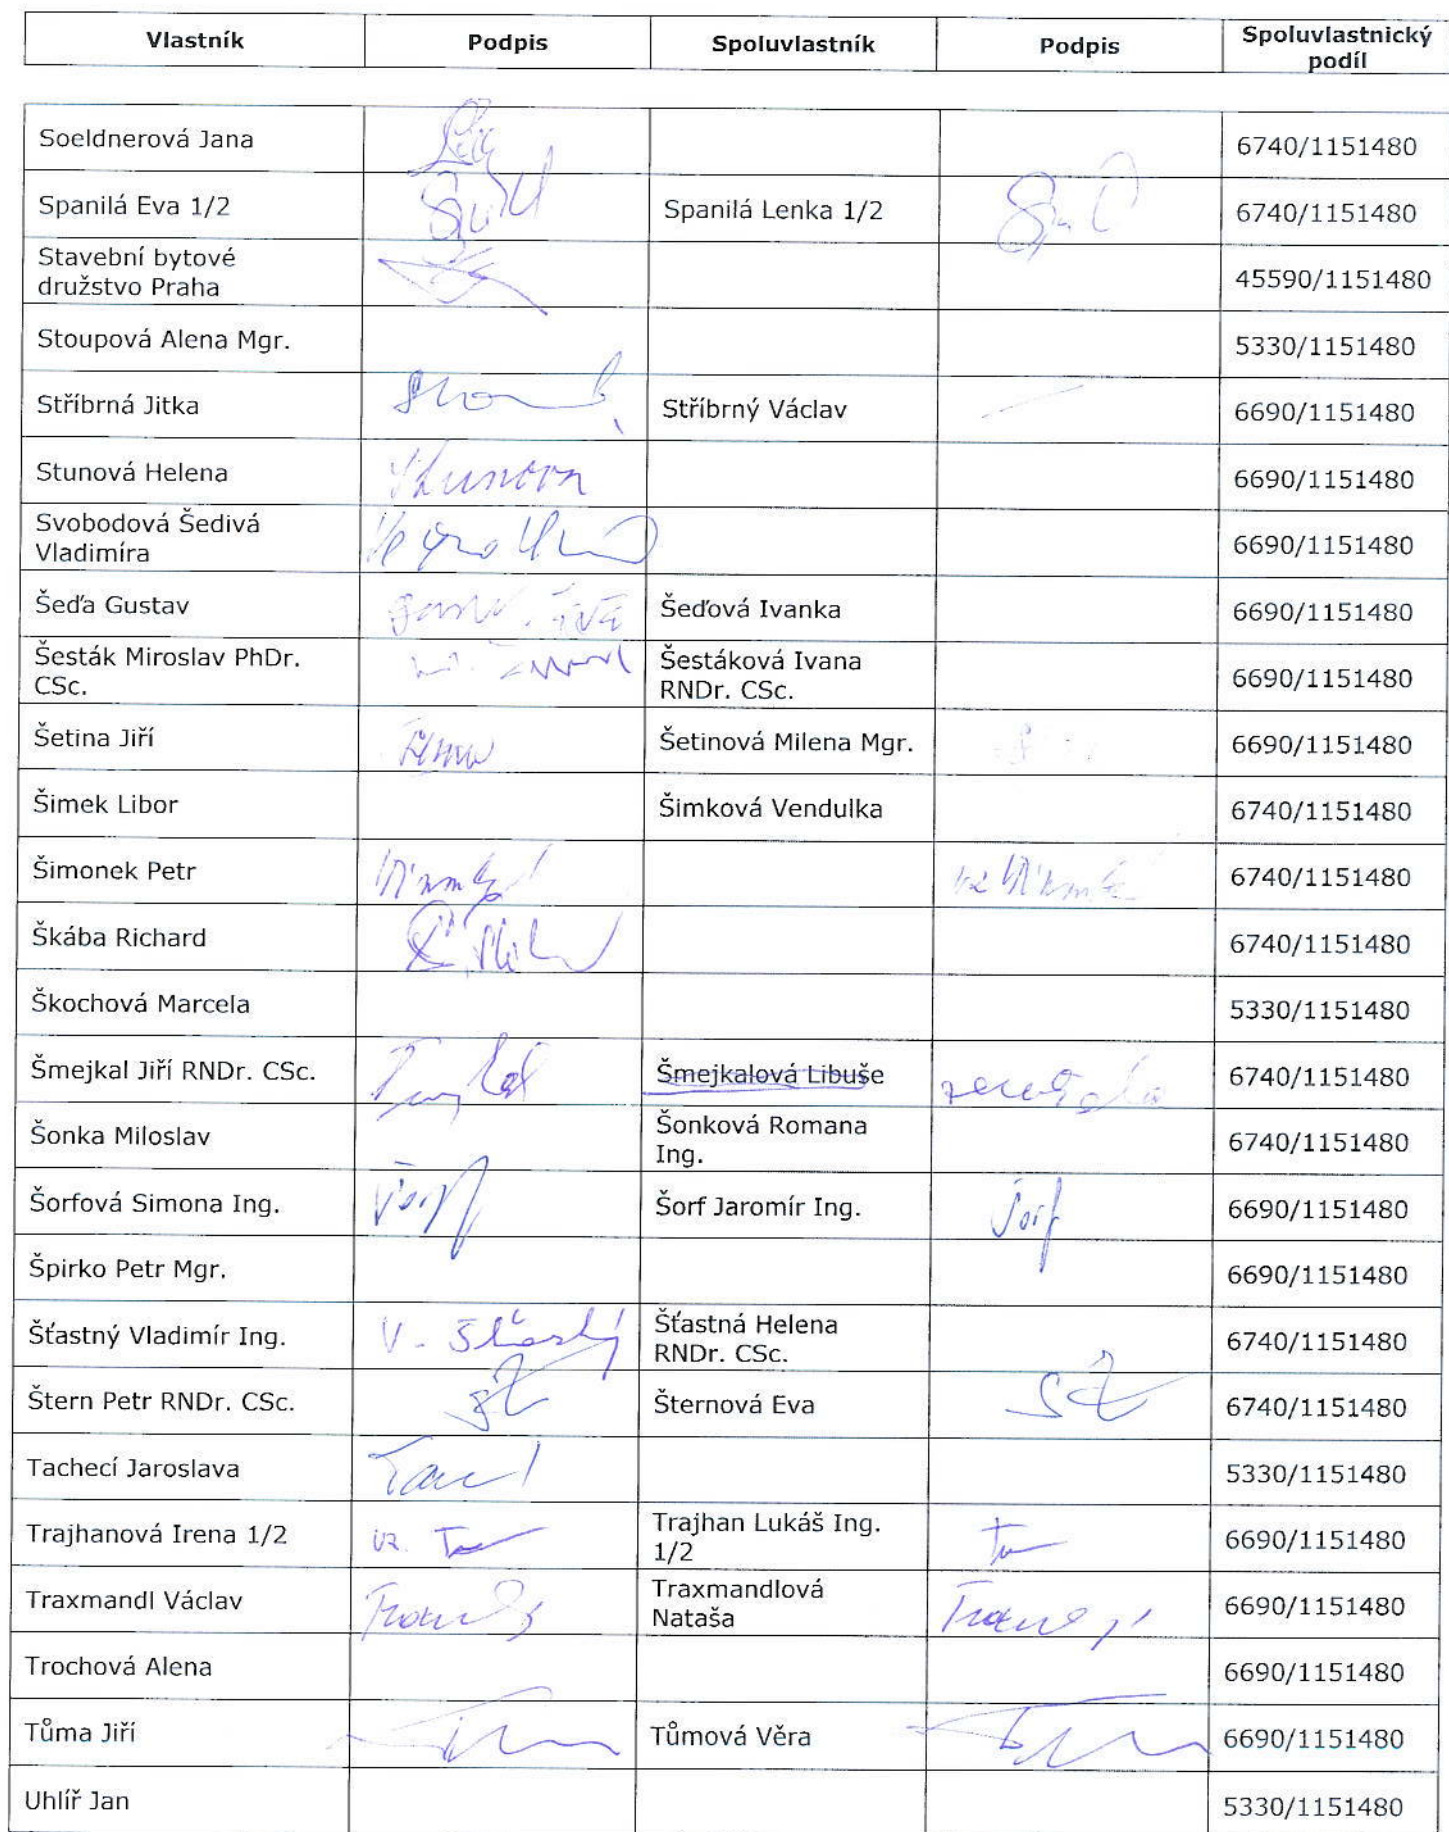 Vlastník Podpis Spoluvlastník Podpis Spoluvlastnický
podíl
Soeldnerová Jana 6740/1151480
Spanilá Eva 1/2 Spanilá Lenka 1/2 6740/1151480
Stavební bytové
družstvo Praha 45590/1151480
Stoupová Alena Mgr. 5330/1151480
Stříbrná Jitka Stříbrný Václav 6690/1151480
Stunová Helena Stunova 6690/1151480
Svobodová Šedivá
Vladimíra 6690/1151480
Šeďa Gustav Šeďová Ivanka 6690/1151480
Šesták Miroslav PhDr.
CSc. Šestáková Ivana
RNDr. CSc. 6690/1151480
Šetina Jiří Šetinová Milena Mgr. 6690/1151480
Šimek Libor Šimková Vendulka 6740/1151480
Šimonek Petr 6740/1151480
Škába Richard 6740/1151480
Škochová Marcela 5330/1151480
Šmejkal Jiří RNDr. CSc. Šmejkalová Libuše zemřela 6740/1151480
Šonka Miloslav Šonková Romana
Ing. 6740/1151480
Šorfová Simona Ing. Šorf Šorf Jaromír Ing. Šorf 6690/1151480
Špirko Petr Mgr. 6690/1151480
Šťastný Vladimír Ing. V. Šťastný Šťastná Helena
RNDr. CSc. 6740/1151480
Štern Petr RNDr. CSc. Šternová Eva 6740/1151480
Tachecí Jaroslava 5330/1151480
Trajhanová Irena 1/2 vz. Trajhan Lukáš Ing.
1/2 6690/1151480
Traxmandl Václav Traxmandlová
Nataša 6690/1151480
Trochová Alena 6690/1151480
Tůma Jiří Tůmová Věra 6690/1151480
Uhlíř Jan 5330/1151480